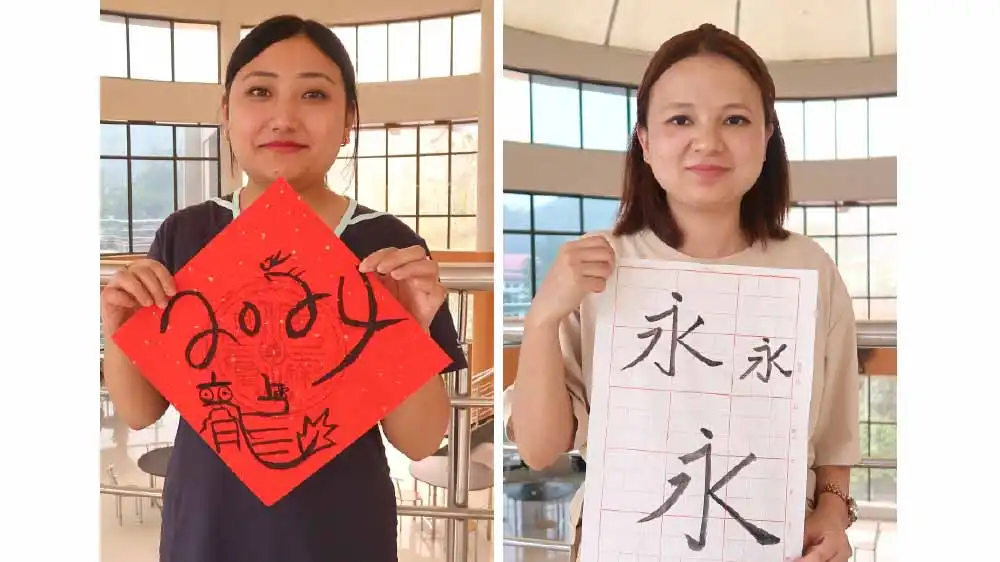 2024
龍
永 永
永